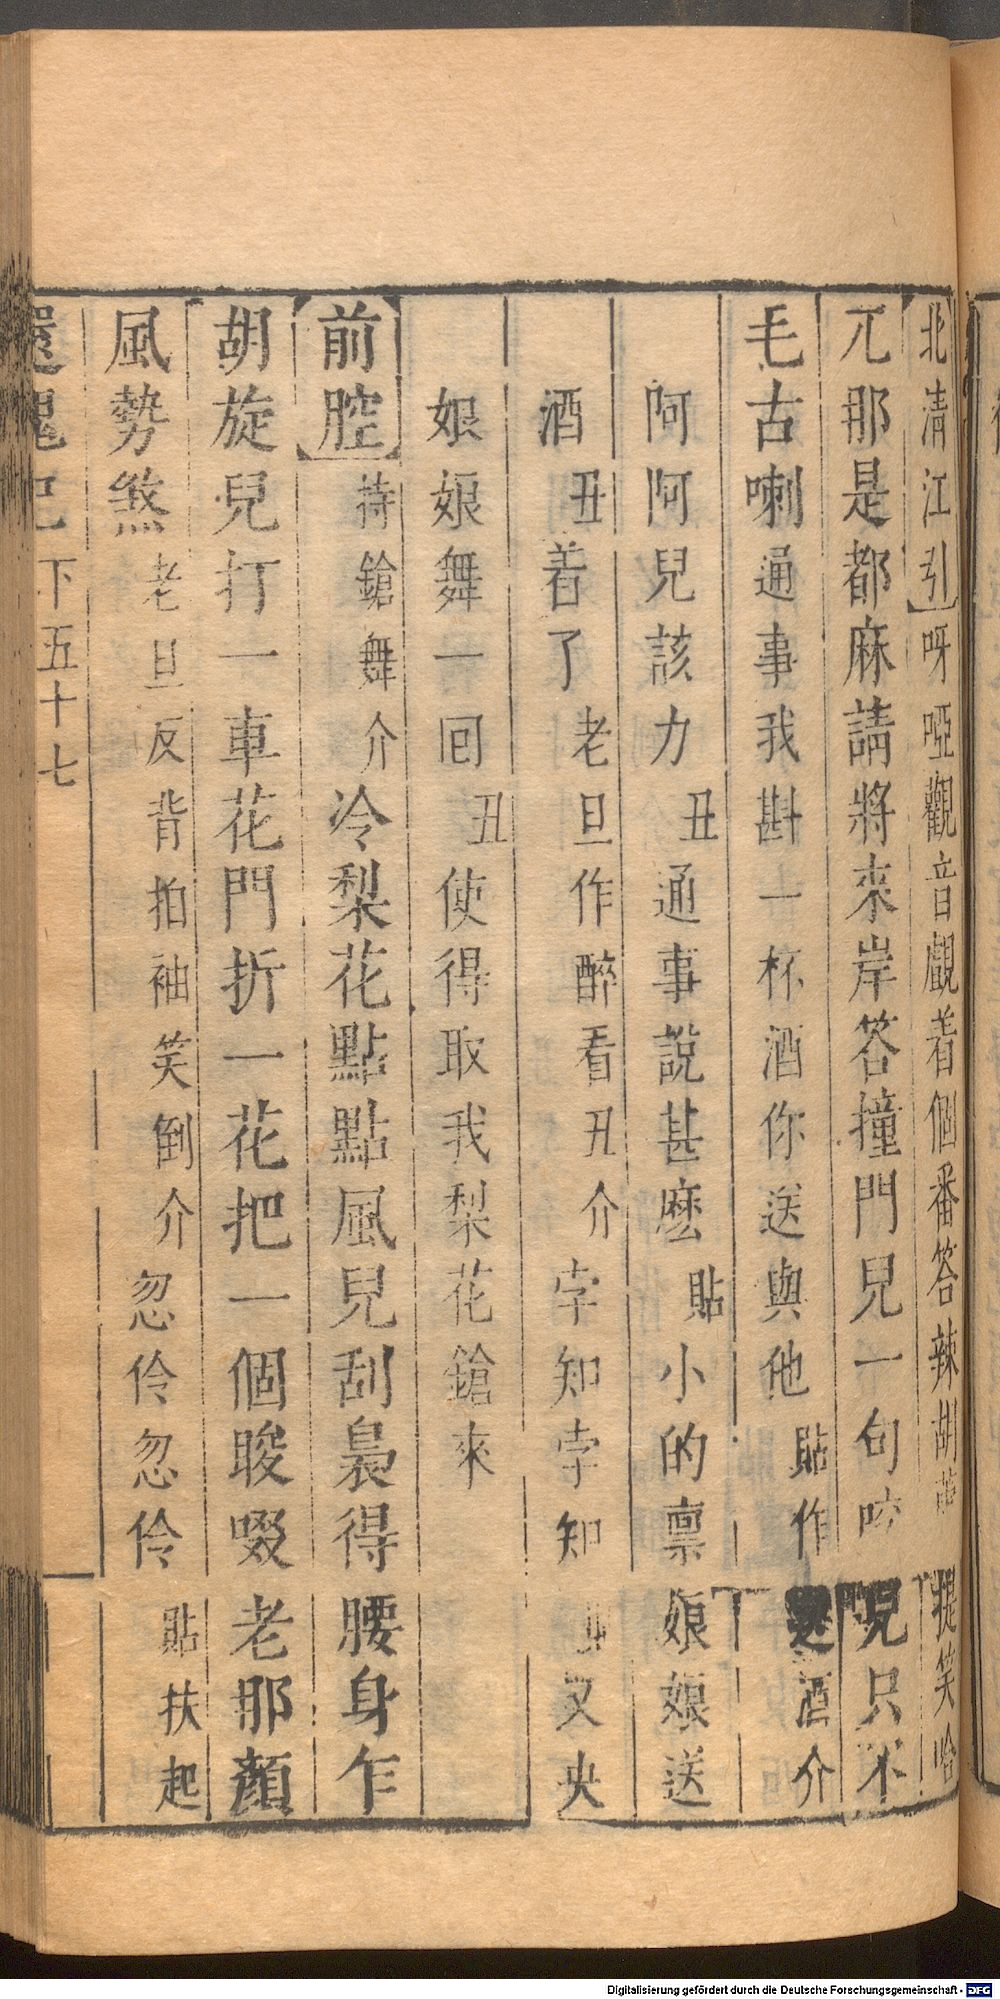 北清江引呀啞觀音覷着個番答辣胡蘆提笑哈
兀那是都麻請將來岸答撞門兒一句咬兒只不
毛古喇通事我斟一杯酒你送與他貼作送酒介
阿阿兒該力丑通事說甚麽貼小的禀娘娘送
酒丑着了老旦作醉看丑介孛知孛知丑又央
娘娘舞一回丑使得取我梨花鎗來
前腔持鎗舞介冷梨花點點風兒刮裊得腰身乍
胡旋兒打一車花門折一花把一個睃啜老那顏
風勢煞老旦反背拍袖笑倒介忽伶忽伶貼扶起
還魂記下五十七
Digitalisierung gefördert durch die Deutsche Forschungsgemeinschaft - DFG